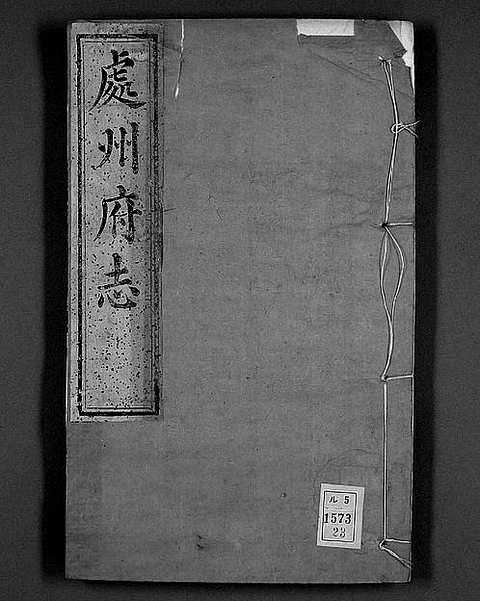 處州府志
ル 5
1573
23